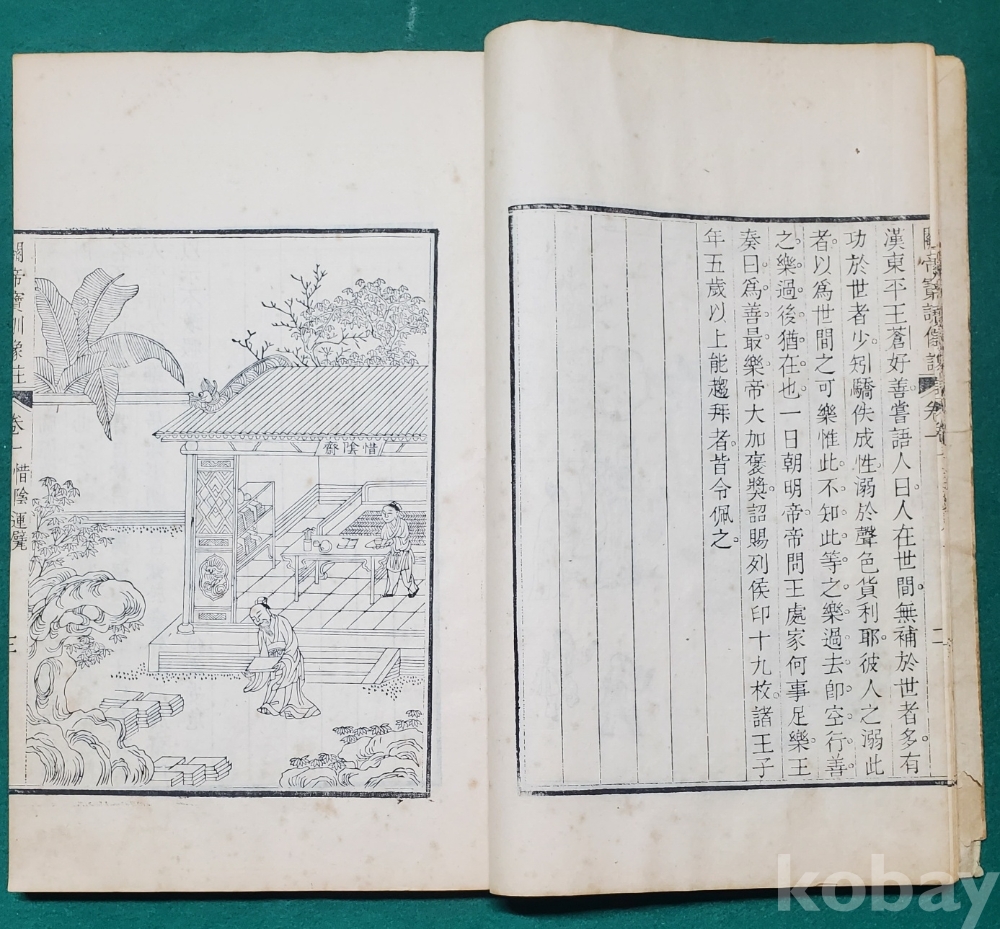 漢東平王蒼好善嘗語人曰人在世間無補於世者多有
功於世者少矧驕佚成性溺於聲色貨利耶彼人之溺此
者以爲世間之可樂惟此不知此等之樂過去卽空行善
之樂過後猶在也一日朝明帝帝問王處家何事足樂王
奏曰爲善最樂帝大加褒獎詔賜列侯印十九枚諸王子
年五歲以上能趨拜者皆令佩之
二
惜陰齋
關帝寶訓像註
卷一 惜陰運甓
三
kobay